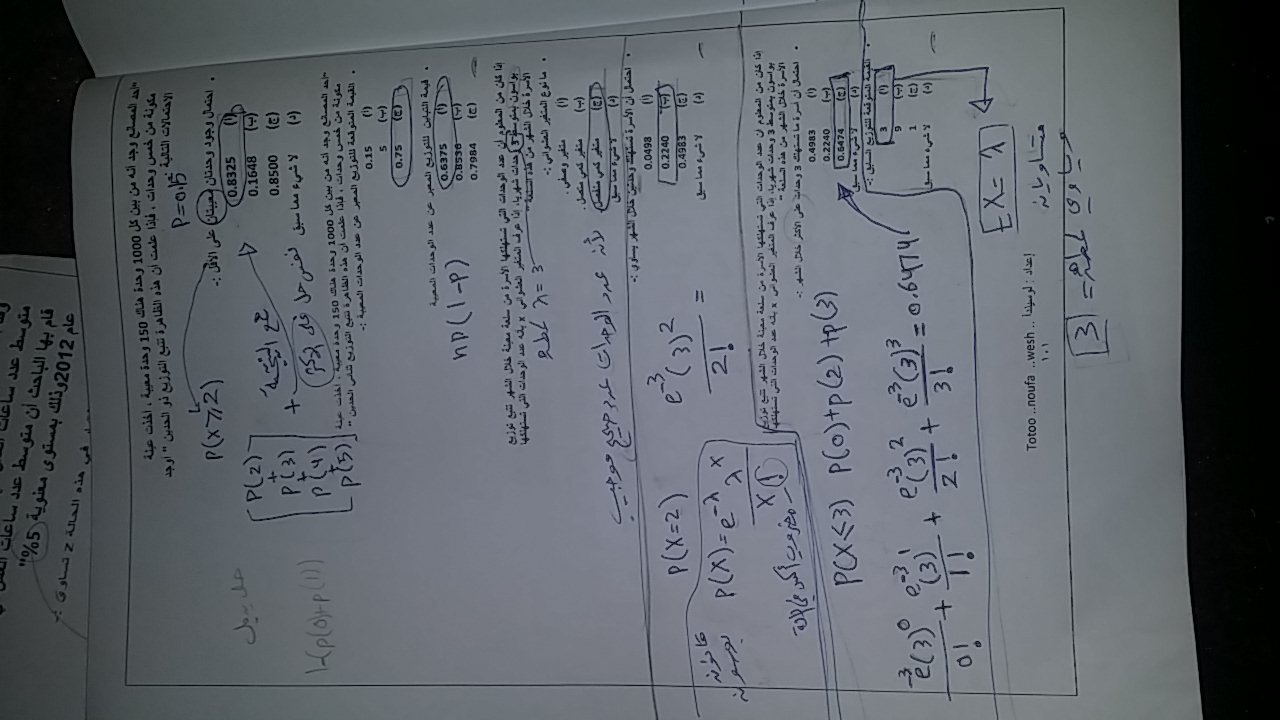 عام 2012 وذلك بمستوى معنوية 5%"
في هذه الحالة Z تساوي :-
"أحد المصانع وجد أنه من بين كل 1000 وحدة هناك 150 وحدة معيبة ، أخذت عينة
مكونة من خمس وحدات ، فإذا علمت أن هذه الظاهرة تتبع التوزيع ذو الحدين " أوجد
الاحتمالات التالية :-
P=0.15
• احتمال وجود وحدتان معيبتان على الأقل :-
(أ) 0.8325
(ب) 0.1648
(ج) 0.8500
(د) لا شيء مما سبق
P(X≥2)
P(2)
+
P(3)
+
P(4)
+
P(5)
1-(P(0)+P(1))
"أحد المصانع وجد أنه من بين كل 1000 وحدة هناك 150 وحدة معيبة ، أخذت عينة
مكونة من خمس وحدات ، فإذا علمت أن هذه الظاهرة تتبع التوزيع ثنائي الحدين "
• القيمة المتوقعة للتوزيع المعبر عن عدد الوحدات المعيبة :-
(أ) 0.15
(ب) 5
(ج) 0.75
• قيمة التباين للتوزيع المعبر عن عدد الوحدات المعيبة
(أ) 0.6375
(ب) 0.8536
(ج) 0.7984
nP(1-P)
إذا كان من المعلوم أن عدد الوحدات التي تستهلكها الأسرة من سلعة معينة خلال الشهر تتبع توزيع
بواسون بمتوسط 3 وحدات شهريا، إذا عرف المتغير العشوائي x بأنه عدد الوحدات التي تستهلكها
الأسرة خلال الشهر من هذه السلعة"
λ = 3
• ما نوع المتغير العشوائي :-
(أ) متغير وصفي.
(ب) متغير كمي متصل.
(ج) متغير كمي منفصل
(د) لا شيء مما سبق
لأن عدد الوحدات عدد صحيح موجب
• احتمال أن الأسرة تستهلك وحدتين خلال الشهر يساوي :-
(أ) 0.0498
(ب) 0.2240
(ج) 0.4983
(د) لا شيء مما سبق
P(X=2)
e⁻³(3)² / 2! =
قانون بواسون
P(X)= e^-λ λ^x / x!
إذا كان من المعلوم أن عدد الوحدات التي تستهلكها الأسرة من سلعة معينة خلال الشهر تتبع توزيع
بواسون بمتوسط 3 وحدات شهريا، إذا عرف المتغير العشوائي x بأنه عدد الوحدات التي تستهلكها
الأسرة خلال الشهر من هذه السلعة"
• احتمال أن أسرة ما تستهلك 3 وحدات على الأكثر خلال الشهر :-
(أ) 0.4983
(ب) 0.2240
(ج) 0.6474
(د) لا شيء مما سبق
P(X≤3) P(0)+P(2)+P(3)
e⁻³(3)⁰/0! + e⁻³(3)¹/1! + e⁻³(3)²/2! + e⁻³(3)³/3! = 0.6474
• القيمة المتوقعة للتوزيع السابق :-
(أ) 3
(ب) 9
(ج) 2
(د) لا شيء مما سبق
EX = λ
متساويان
إعداد : لوسيندا .. wesh.. noufa.. Totoo
١٠١
3